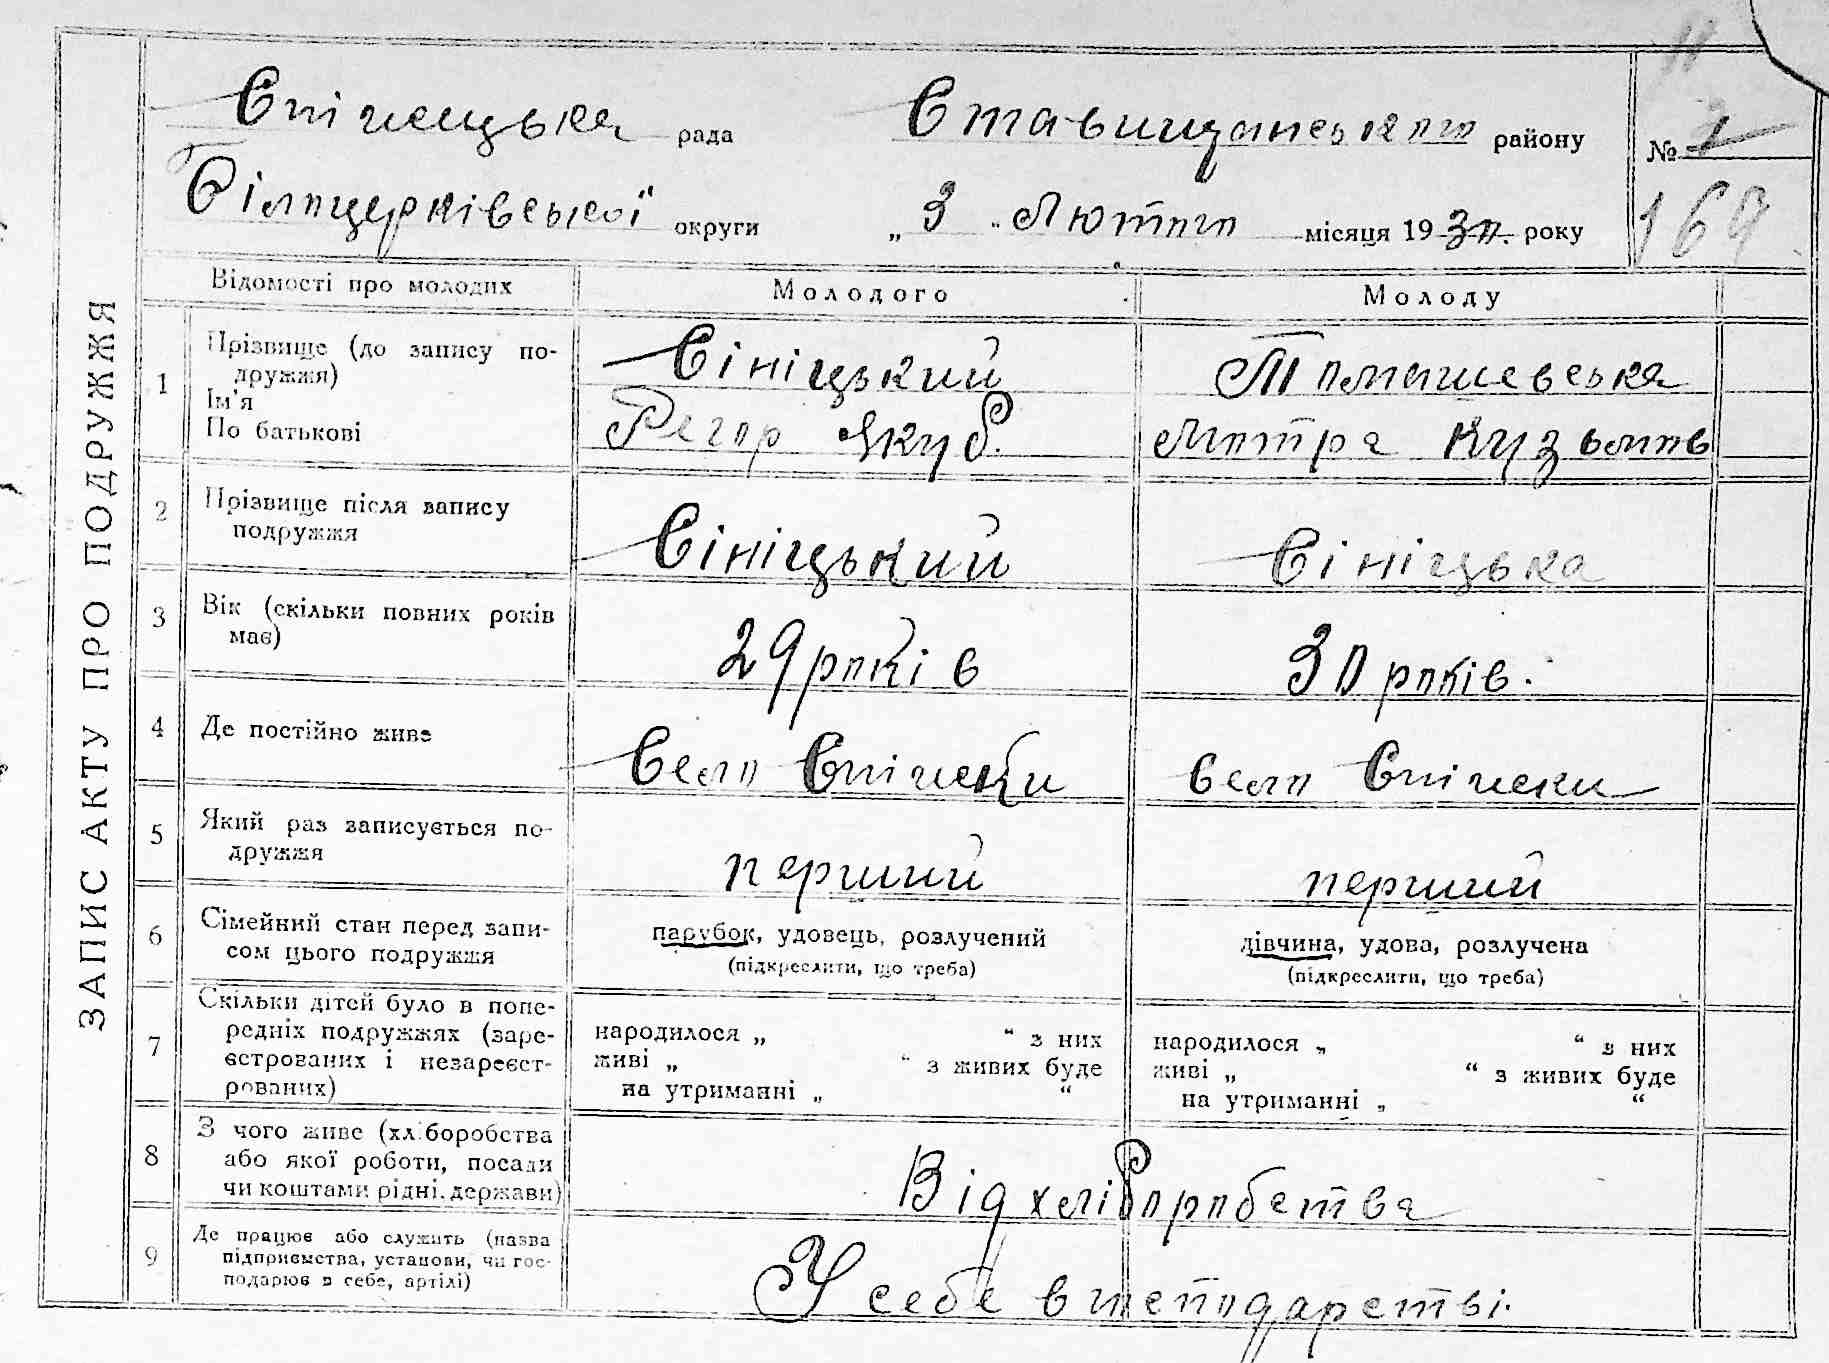 Спіжецька рада Ставищанського району № 2
Білоцерківської округи „ 3 “ Лютого місяця 19 30. року 169
Відомості про молодих Молодого Молоду
ЗАПИС АКТУ ПРО ПОДРУЖЖЯ
1 Прізвище (до запису по-
дружжя)
Ім'я
По батькові
Сініцький
Регор Якуб.
Томашевська
Мотра Кузьмов
2 Прізвище після запису
подружжя
Сініцький Сініцька
3 Вік (скільки повних років
має)
29 років 30 років.
4 Де постійно живе
Село Спіжеки село Спіжеки
5 Який раз записується по-
дружжя
перший перший
6 Сімейний стан перед запи-
сом цього подружжя
парубок, удовець, розлучений
(підкреслити, що треба)
дівчина, удова, розлучена
(підкреслити, що треба)
7 Скільки дітей було в попе-
редніх подружжях (заре-
єстрованих і незареєст-
рованих)
народилося „ “ з них
живі „ “ з живих буде
на утриманні „ “
народилося „ “ з них
живі „ “ з живих буде
на утриманні „ “
8 З чого живе (хліборобства
або якої роботи, посади
чи коштами рідні, держави)
Від хліборобства
9 Де працює або служить (назва
підприємства, установи, чи гос-
подарює в себе, артілі)
У себе в господарстві.